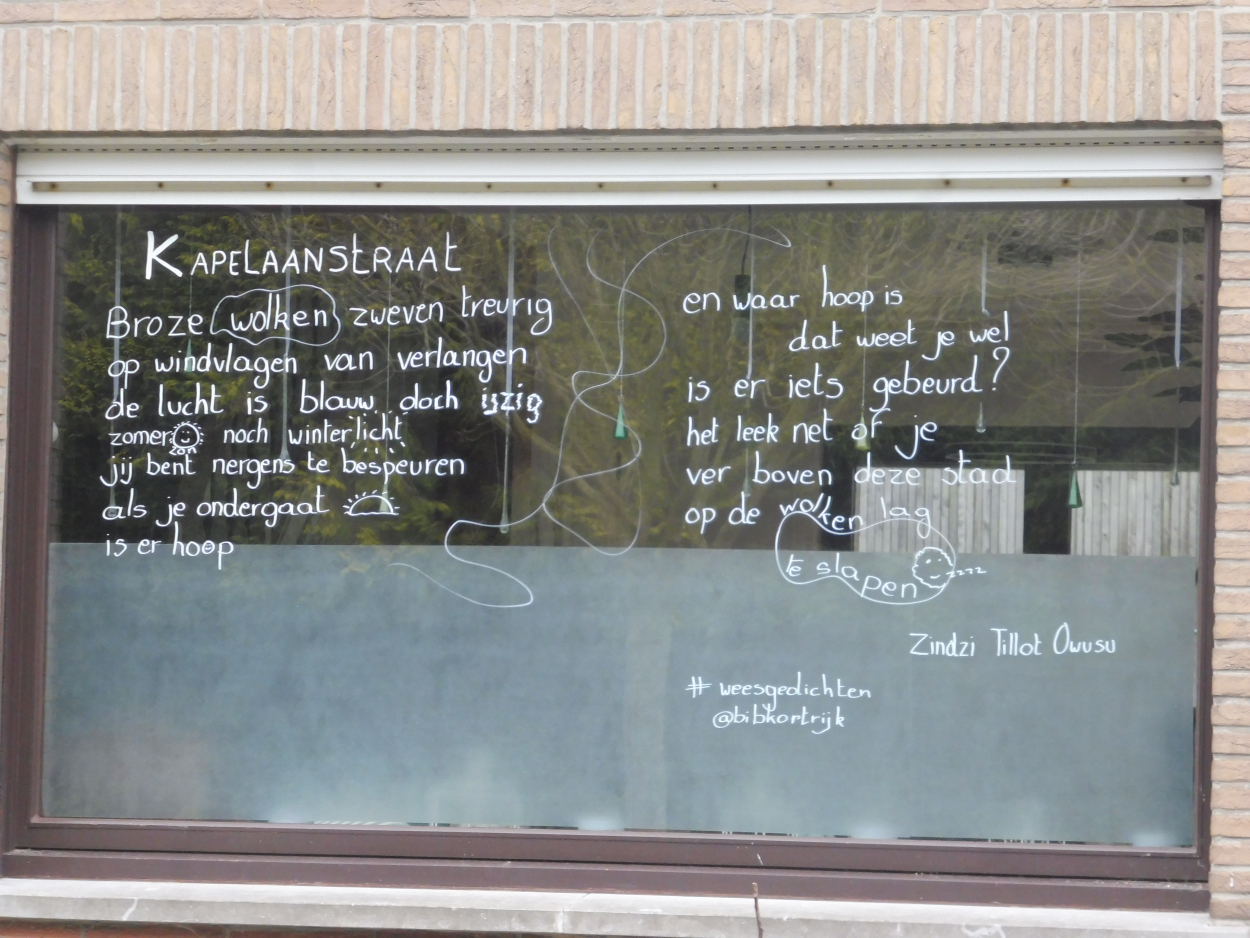 KAPELAANSTRAAT
Broze wolken zweven treurig
op windvlagen van verlangen
de lucht is blauw doch ijzig
zomerzon noch winterlicht
jij bent nergens te bespeuren
als je ondergaat
is er hoop
en waar hoop is
dat weet je wel
is er iets gebeurd?
het leek net of je
ver boven deze stad
op de wolken lag
te slapen
zzzz
Zindzi Tillot Owusu
#weesgedichten
@bibkortrijk